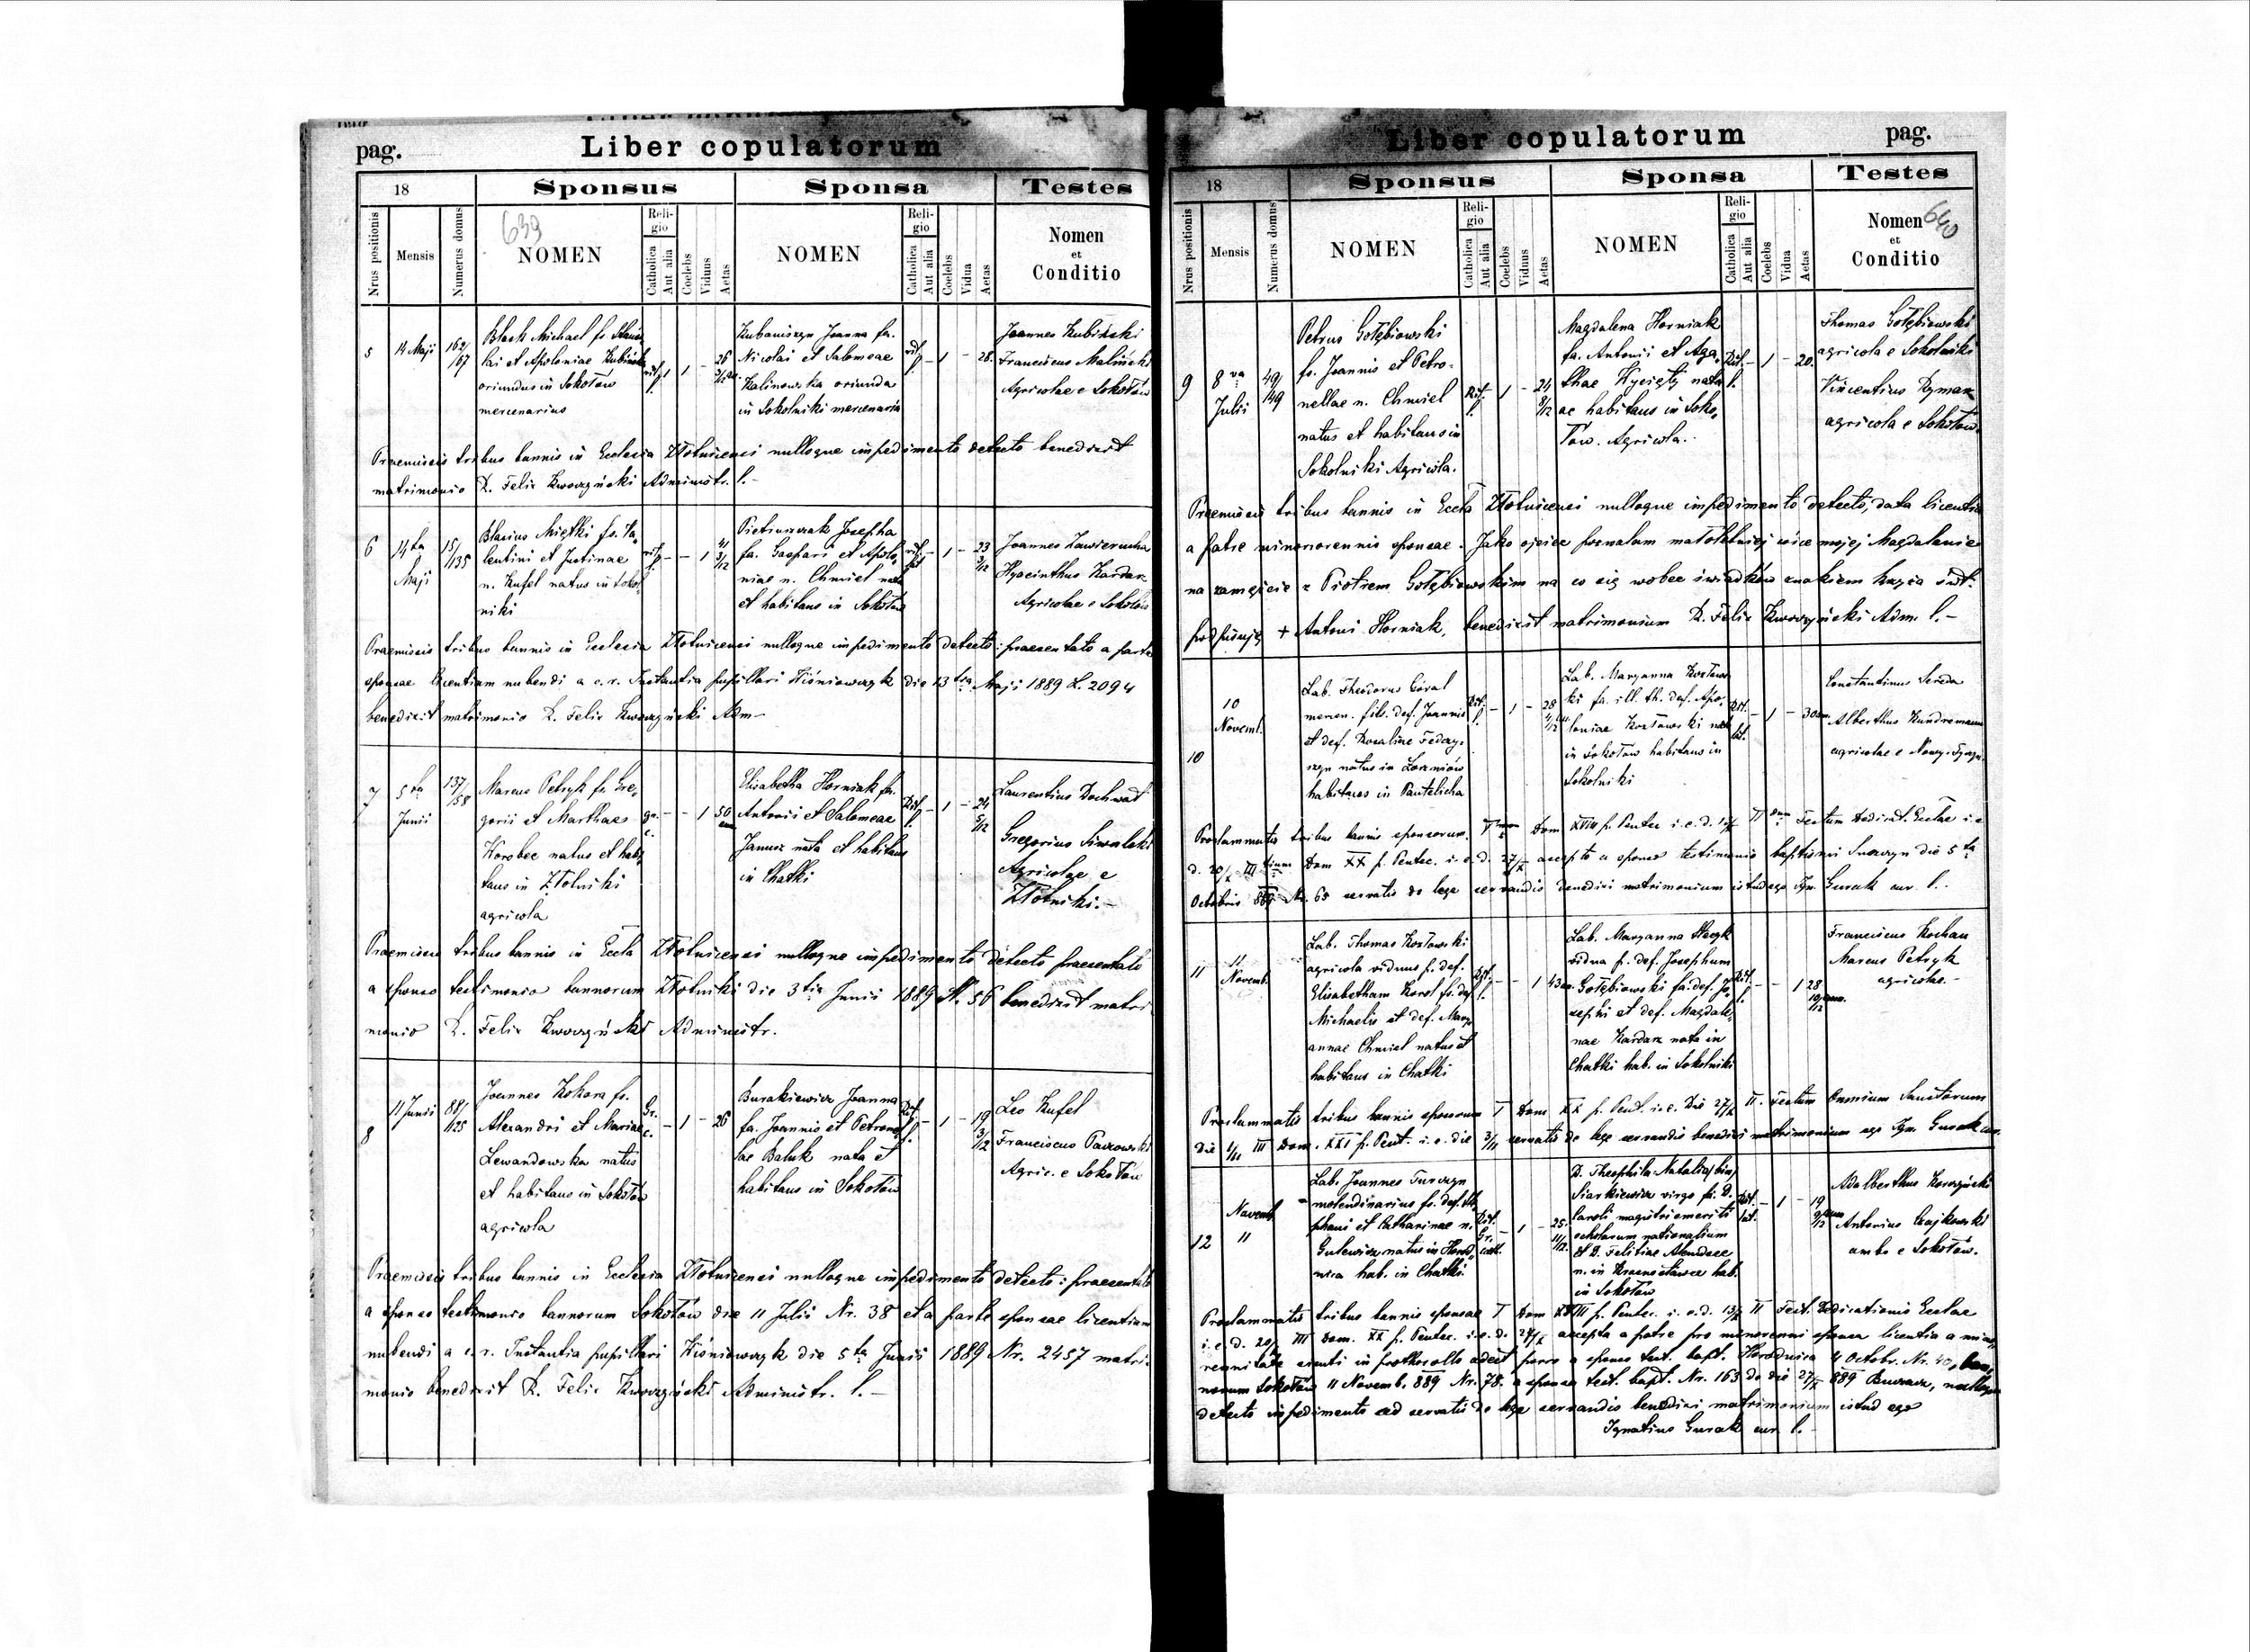 pag.
Liber copulatorum
18
Sponsus
Sponsa
Testes
Nrus positionis
Mensis
Numerus domus
639
NOMEN
Religio
Catholica
Aut alia
Coelebs
Viduus
Aetas
NOMEN
Religio
Catholica
Aut alia
Coelebs
Vidua
Aetas
Nomen
et
Conditio
5
14 Maji
162/67
Blach Michael fs.
et Apoloniae
oriundus in Sokołów
mercenarius
rit.
l.
1
26
Joanna fa.
Nicolai et Salomeae
Kalinowska oriunda
in Sokolniki mercenaria
rit.
l.
1
28.
Joannes Kubiński
Franciscus Maliński
Agricolae e Sokołów
Praemissis tribus bannis in Ecclesia Złotnicensi nulloque impedimento detecto benedixit
matrimonio X. Felix Administr. l. -
6
14ta
Maji
15/135
Blasius Miętki fs. Va-
lentini et Justinae
n. Kufel natus in Sokol-
niki
rit.
l.
1
41 3/12
Pietruszczak Josepha
fa. Gaspari et Apolo-
niae n. Chmiel nata
et habitans in Sokołów
rit.
lat
1
23 3/12
Joannes Zawierucha
Hyacinthus Kardasz
Agricolae e Sokołów
Praemissis tribus bannis in Ecclesia Złotnicensi nulloque impedimento detecto: praesentato a parte
sponsae licentiam nubendi a c. r. Instantia pupillari Wiśniowczyk die 13tia Maji 1889 L. 2094
benedixit matrimonio X. Felix Adm -
7
5ta
Junii
137/158
Marcus Petryk fs. Gre-
gorii et Marthae
Horobec natus et habi-
tans in Złotniki
agricola
gr.
c.
1
50
Elisabetha Horniak fa.
Antonii et Salomeae
Janusz nata et habitans
in Chatki
Rit.
l.
1
24 5/12
Laurentius Dochwat
Gregorius Siwalski
Agricolae e
Złotniki. -
Praemissis tribus bannis in Eccla Złotnicensi nulloque impedimento detecto praesentato
a sponso testimonio bannorum Złotniki die 3tia Junii 1889 N. 56 benedixit matri-
monio X. Felix Administr.
8
11 Junii
88/125
Joannes Kohara fs.
Alexandri et Mariae
Lewandowska natus
et habitans in Sokołów
agricola
Gr.
c.
1
26
Burakiewicz Joanna
fa. Joannis et Petronel-
lae Baluk nata et
habitans in Sokołów
Rit.
l.
1
19 3/12
Leo Kufel
Franciscus Paszowski
Agric. e Sokołów
Praemissis tribus bannis in Ecclesia Złotnicensi nulloque impedimento detecto: praesentato
a sponso testimonio bannorum Sokołów die 11 Julii Nr. 38 et a parte sponsae licentiam
nubendi a c. r. Instantia pupillari Wiśniowczyk die 5ta Junii 1889 Nr. 2457 matri-
monio benedixit X. Felix Administr. l. -
Liber copulatorum
pag.
18
Sponsus
Sponsa
Testes
Nrus positionis
Mensis
Numerus domus
NOMEN
Religio
Catholica
Aut alia
Coelebs
Viduus
Aetas
NOMEN
Religio
Catholica
Aut alia
Coelebs
Vidua
Aetas
Nomen
et
Conditio
640
9
8va
Julii
49/149
Petrus Gołębiowski
fs. Joannis et Petro-
nellae n. Chmiel
natus et habitans in
Sokolniki Agricola.
Rit.
l.
1
24 8/12
Magdalena Horniak
fa. Antonii et Aga-
thae nata
ac habitans in Soko-
łów. Agricola.
Rit.
l.
1
20.
Thomas Gołębiowski
agricola e Sokolniki
Vincentius Rymarz
agricola e Sokołów.
Praemissis tribus bannis in Eccla Złotnicensi nulloque impedimento detecto, data licentia
a patre minorennis sponsae: Jako ojciec pozwalam małoletniej córce mojej Magdalenie
na zamęście z Piotrem Gołębiowskim na co się wobec świadków znakiem krzyża św.
podpisuję + Antoni Horniak, benedixit matrimonium X. Felix Adm. l. -
10
10
Novemb.
Lab. Theodorus Góral
mercen. fils. def. Joannis
et def. Rosaliae
natus in
habitans in Pantelicha
Rit.
l.
1
28 4/12
Lab. Maryanna Kozłow-
ski fa. ill. th. def. Apo-
loniae Kozłowski nata
in Sokołów habitans in
Sokolniki
Rit.
lat.
1
30 ann.
Constantinus Sereda
Alberthus
agricolae e
Proclammatis tribus bannis sponsorum Imum Dom XVIII p. Pentec i. e. d. II dum Festum Dedicat. Eccłae i. e
d. 20/X III tium Dom XX p. Pentec. i. e. d. 27/X accepto a sponso testimonio baptismi die 5ta
Octobris 889 Nr. 65 servatis de lege servandis benedixi matrimonium istud ego Ign. Gurak cur. l.
11
11
Novemb.
Lab. Thomas Kozłowski
agricola viduus p. def.
Elisabetham Korol fs. def.
Michaelis et def. Mary-
annae Chmiel natus et
habitans in Chatki
Rit.
l.
1
43 an.
Lab. Maryanna
vidua p. def. Josephum
Gołębiowski fa. def. Jo-
sephi et def. Magdale-
nae Kardasz nata in
Chatki hab. in Sokolniki
Rit.
l.
1
28 10/12 ann.
Franciscus Kochan
Marcus Petryk
agricolae. -
Proclammatis tribus bannis sponsorum I Dom XX p. Pent. i. e. Die 27/X II. Festum Omnium Sanctorum
Die 1/11 III Dom. XXI p. Pent. i. e. die 3/11 servatis de lege servandis benedixi matrimonium ego Ign. Gurak cur.
12
Novemb.
11
Lab. Joannes Turczyn
molendinarius fs. def. Ste-
phani et Catharinae n.
Gulewicz natus in Horod-
nica hab. in Chatki.
Rit.
Gr.
cath.
1
25. 11/12.
D. Theophila Natalia /bin/
Siarkiewicz virgo fa. D.
Caroli magistri emeriti
scholarum nationalium
et D. Felitiae
n. in hab.
in Sokołów
Rit.
lat.
1
19 9/12
Adalberthus
Antonius Czajkowski
ambo e Sokołów.
Proclammatis tribus bannis sponsae I Dom XVIII p. Pentec. i. e. d. 13/X II Fest. Dedicationis Ecclae
i. e d. 20/X III Dom. XX p. Pentec. i. e. d. 27/X accepta a patre pro minorenni sponsa licentia a mino-
rennitate in prothocollo adest porro a sponso test. bapt. Horodnica 4 Octobr. Nr. 40, ban-
norum Sokołów 11 Novemb. 889 Nr. 78. a sponsa test. bapt. Nr. 163 de die 27/X 889 Buczacz, nulloque
detecto impedimento sed servatis de lege servandis benedixi matrimonium istud ego
Ignatius Gurak cur. l. -